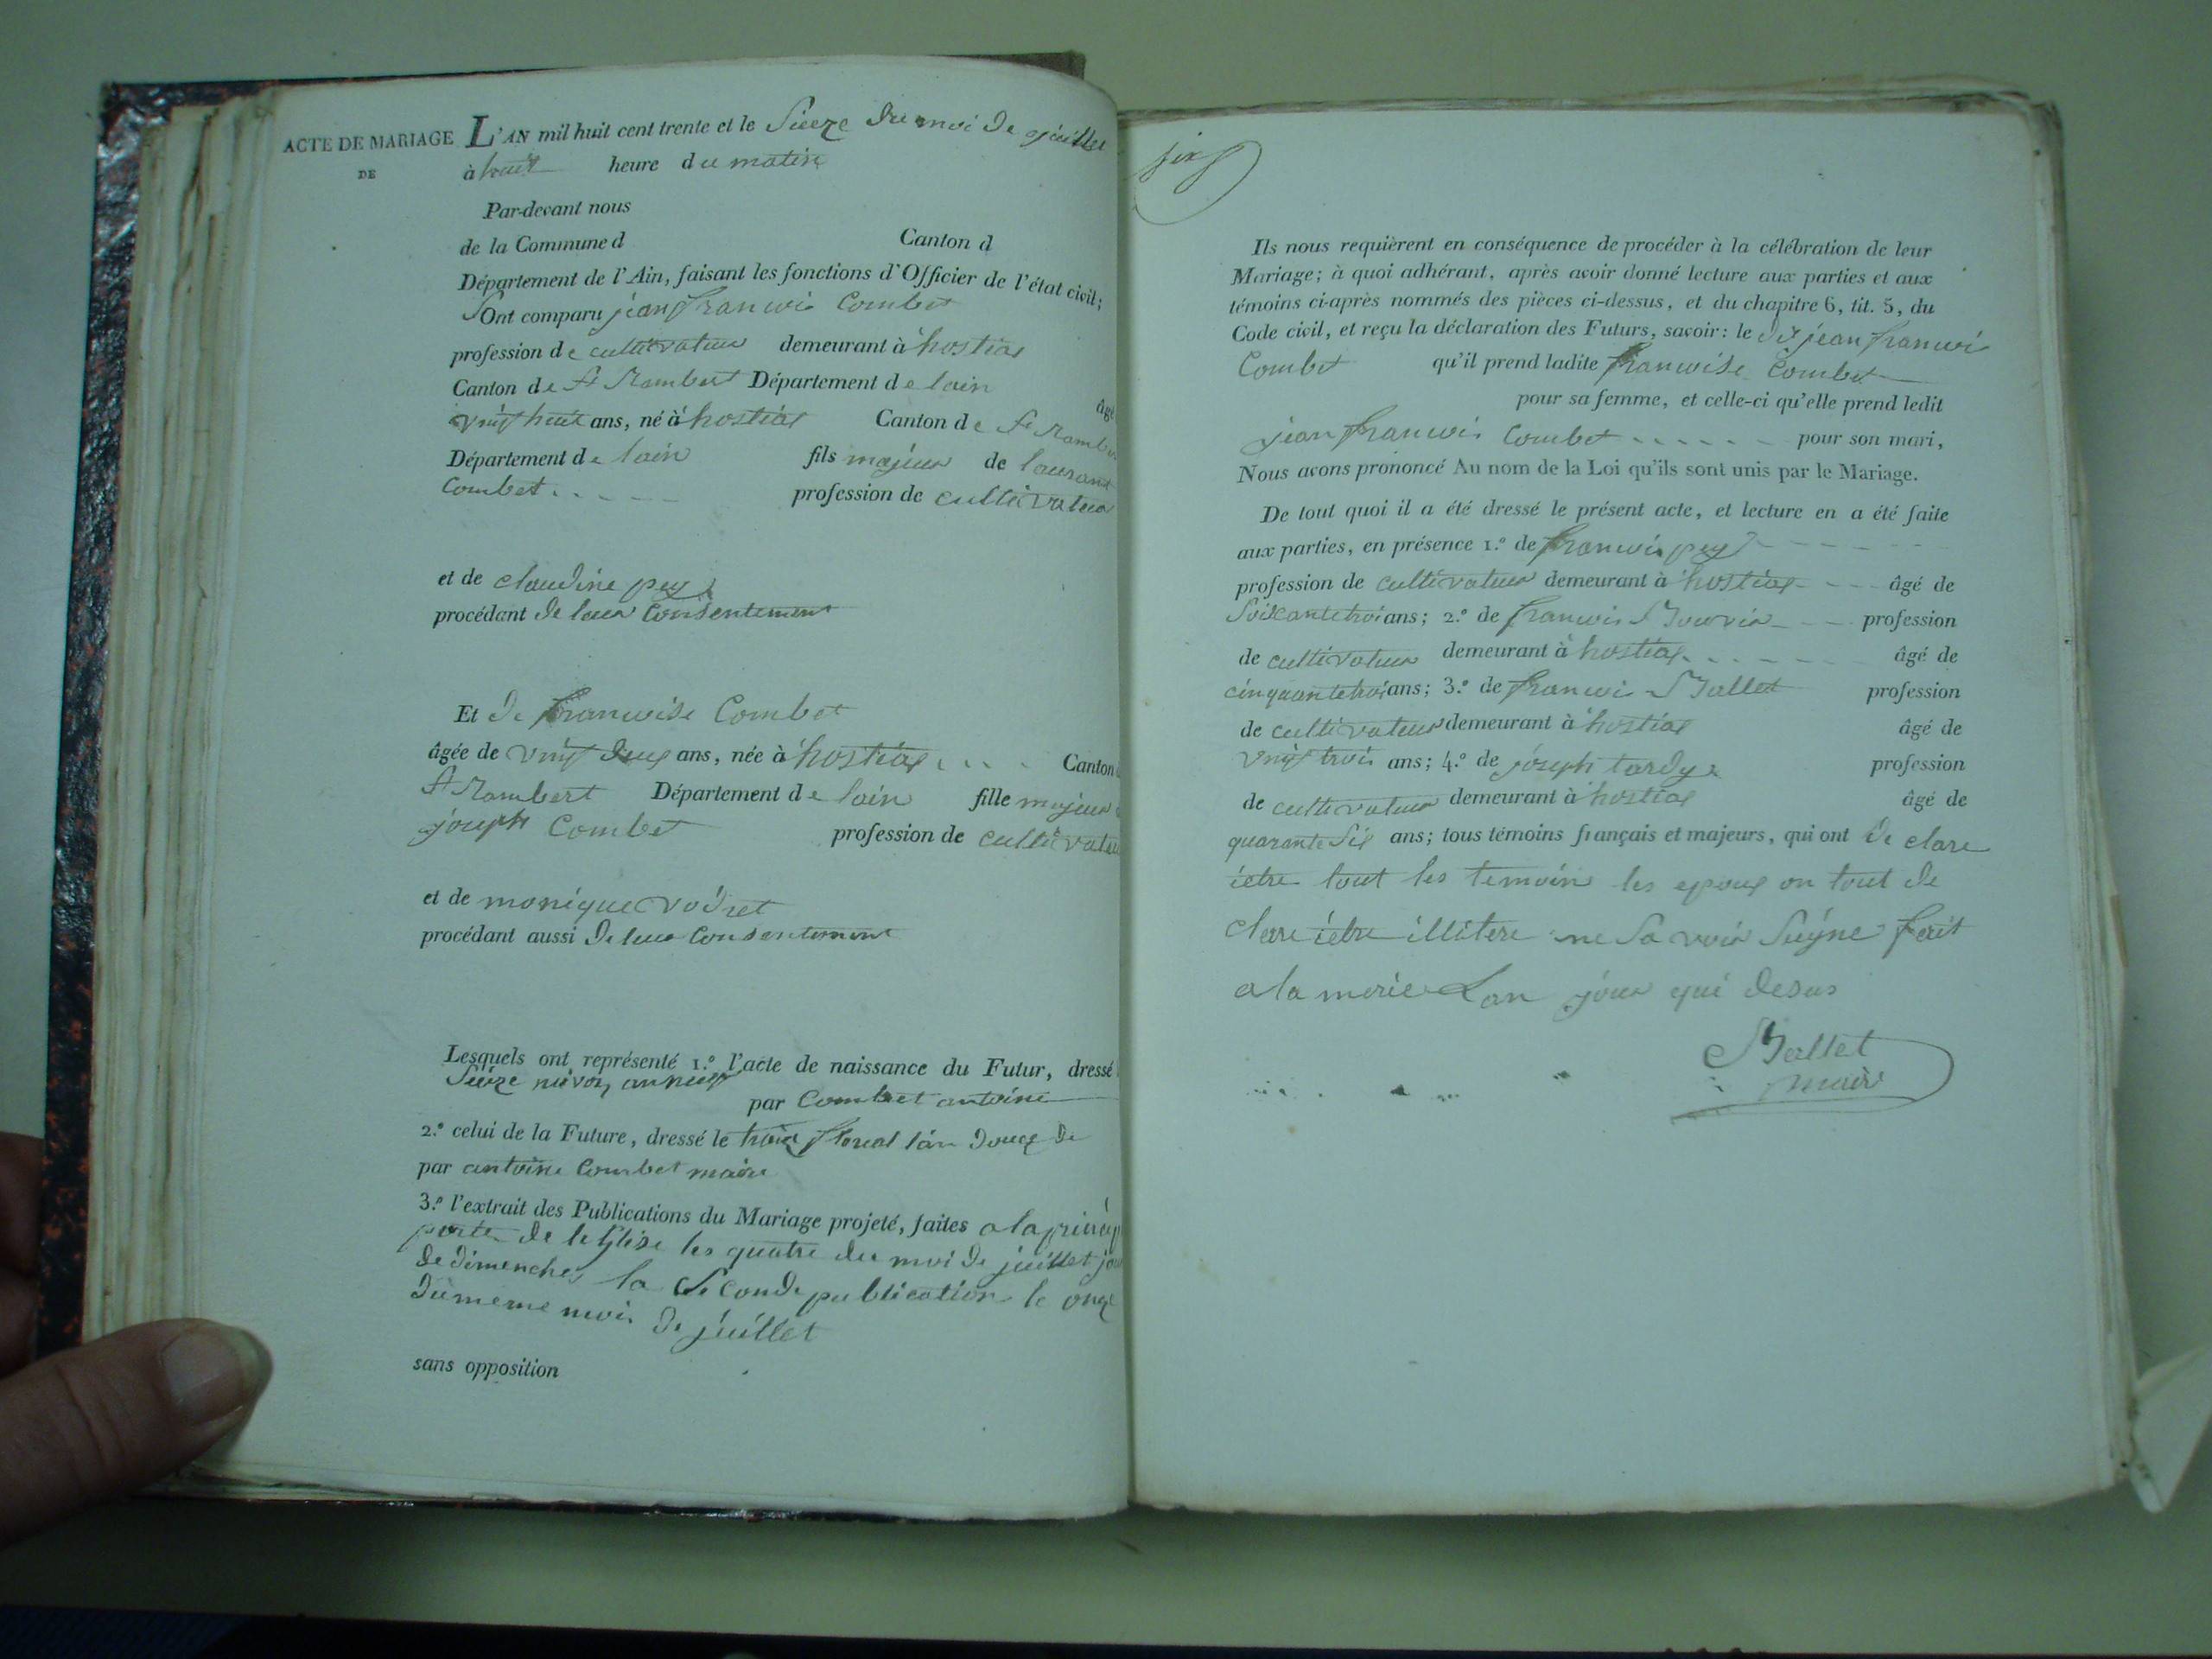 ACTE DE MARIAGE L'AN mil huit cent trente et le Sieze du moi de juillet
DE à huit heure du matin
Par-devant nous
de la Commune d Canton d
Département de l'Ain, faisant les fonctions d'Officier de l'état civil;
Ont comparu jean francois Combet
profession de cultivateur demeurant à hostias
Canton de St Rambert Département de lain
âgé
vingt huit ans, né à hostias Canton de St Rambert
Département de lain fils majeur de laurant
Combet profession de cultivateur
et de claudine pey
procédant de leur Consentement
Et de francoise Combet
âgée de vingt deux ans, née à hostias Canton
St Rambert Département de lain fille majeur
joseph Combet profession de cultivateu
et de monique vodret
procédant aussi de leur Consentement
Lesquels ont représenté 1.º l'acte de naissance du Futur, dressé
Sieze nivoz an neuf
par Combet antoine
2.º celui de la Future, dressé le trois floreal lan douze de
par antoine Combet maire
3.º l'extrait des Publications du Mariage projeté, faites a la princip
porte de leglise les quatre du moi de juillet jou
de dimenche la Seconde publication le onze
du meme mois de juillet
sans opposition
six
Ils nous requièrent en conséquence de procéder à la célébration de leur
Mariage; à quoi adhérant, après avoir donné lecture aux parties et aux
témoins ci-après nommés des pièces ci-dessus, et du chapitre 6, tit. 5, du
Code civil, et reçu la déclaration des Futurs, savoir: le dit jean francois
Combet qu'il prend ladite francoise Combet
pour sa femme, et celle-ci qu'elle prend ledit
jean francois Combet pour son mari,
Nous avons prononcé Au nom de la Loi qu'ils sont unis par le Mariage.
De tout quoi il a été dressé le présent acte, et lecture en a été faite
aux parties, en présence 1.º de francois pey
profession de cultivateur demeurant à hostias âgé de
Soixante troi ans; 2.º de francois Bouvier profession
de cultivateur demeurant à hostias âgé de
cinquante troi ans; 3.º de francois Ballet profession
de cultivateur demeurant à hostias âgé de
vingt trois ans; 4.º de joseph tardy profession
de cultivateur demeurant à hostias âgé de
quarante Six ans; tous témoins français et majeurs, qui ont de clare
ietre tout les temoins les epoux on tout de
clare ietre illitere ne Sa voir Suigne fait
a la merie Lan jour que desus
Ballet
maire